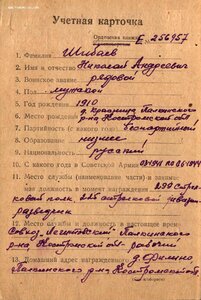 Учетная карточка
Орденская книжка Е 256957
1. Фамилия Шибаев
2. Имя и отчество Николай Андреевич
3. Воинское звание рядовой
4. Пол мужской
5. Год рождения 1910
6. д Палкинского
р-на Костромской обл.
7. Партийность (с какого года) беспартийный
8. Образование низшее
9. Национальность русский
10. С какого года в Советской Армии
11. Место службы (наименование части) и занимаемая
должность в момент награждения 299 Стрелковый
полк 225 стрелковой дивизии
разведчик
12. Место службы и должность в настоящее время
Совхоз Палкинского
р-на Костромской обл. рабочий
13. Домашний адрес награжденного д. Филино
Палкинского р-на Костромской обл.